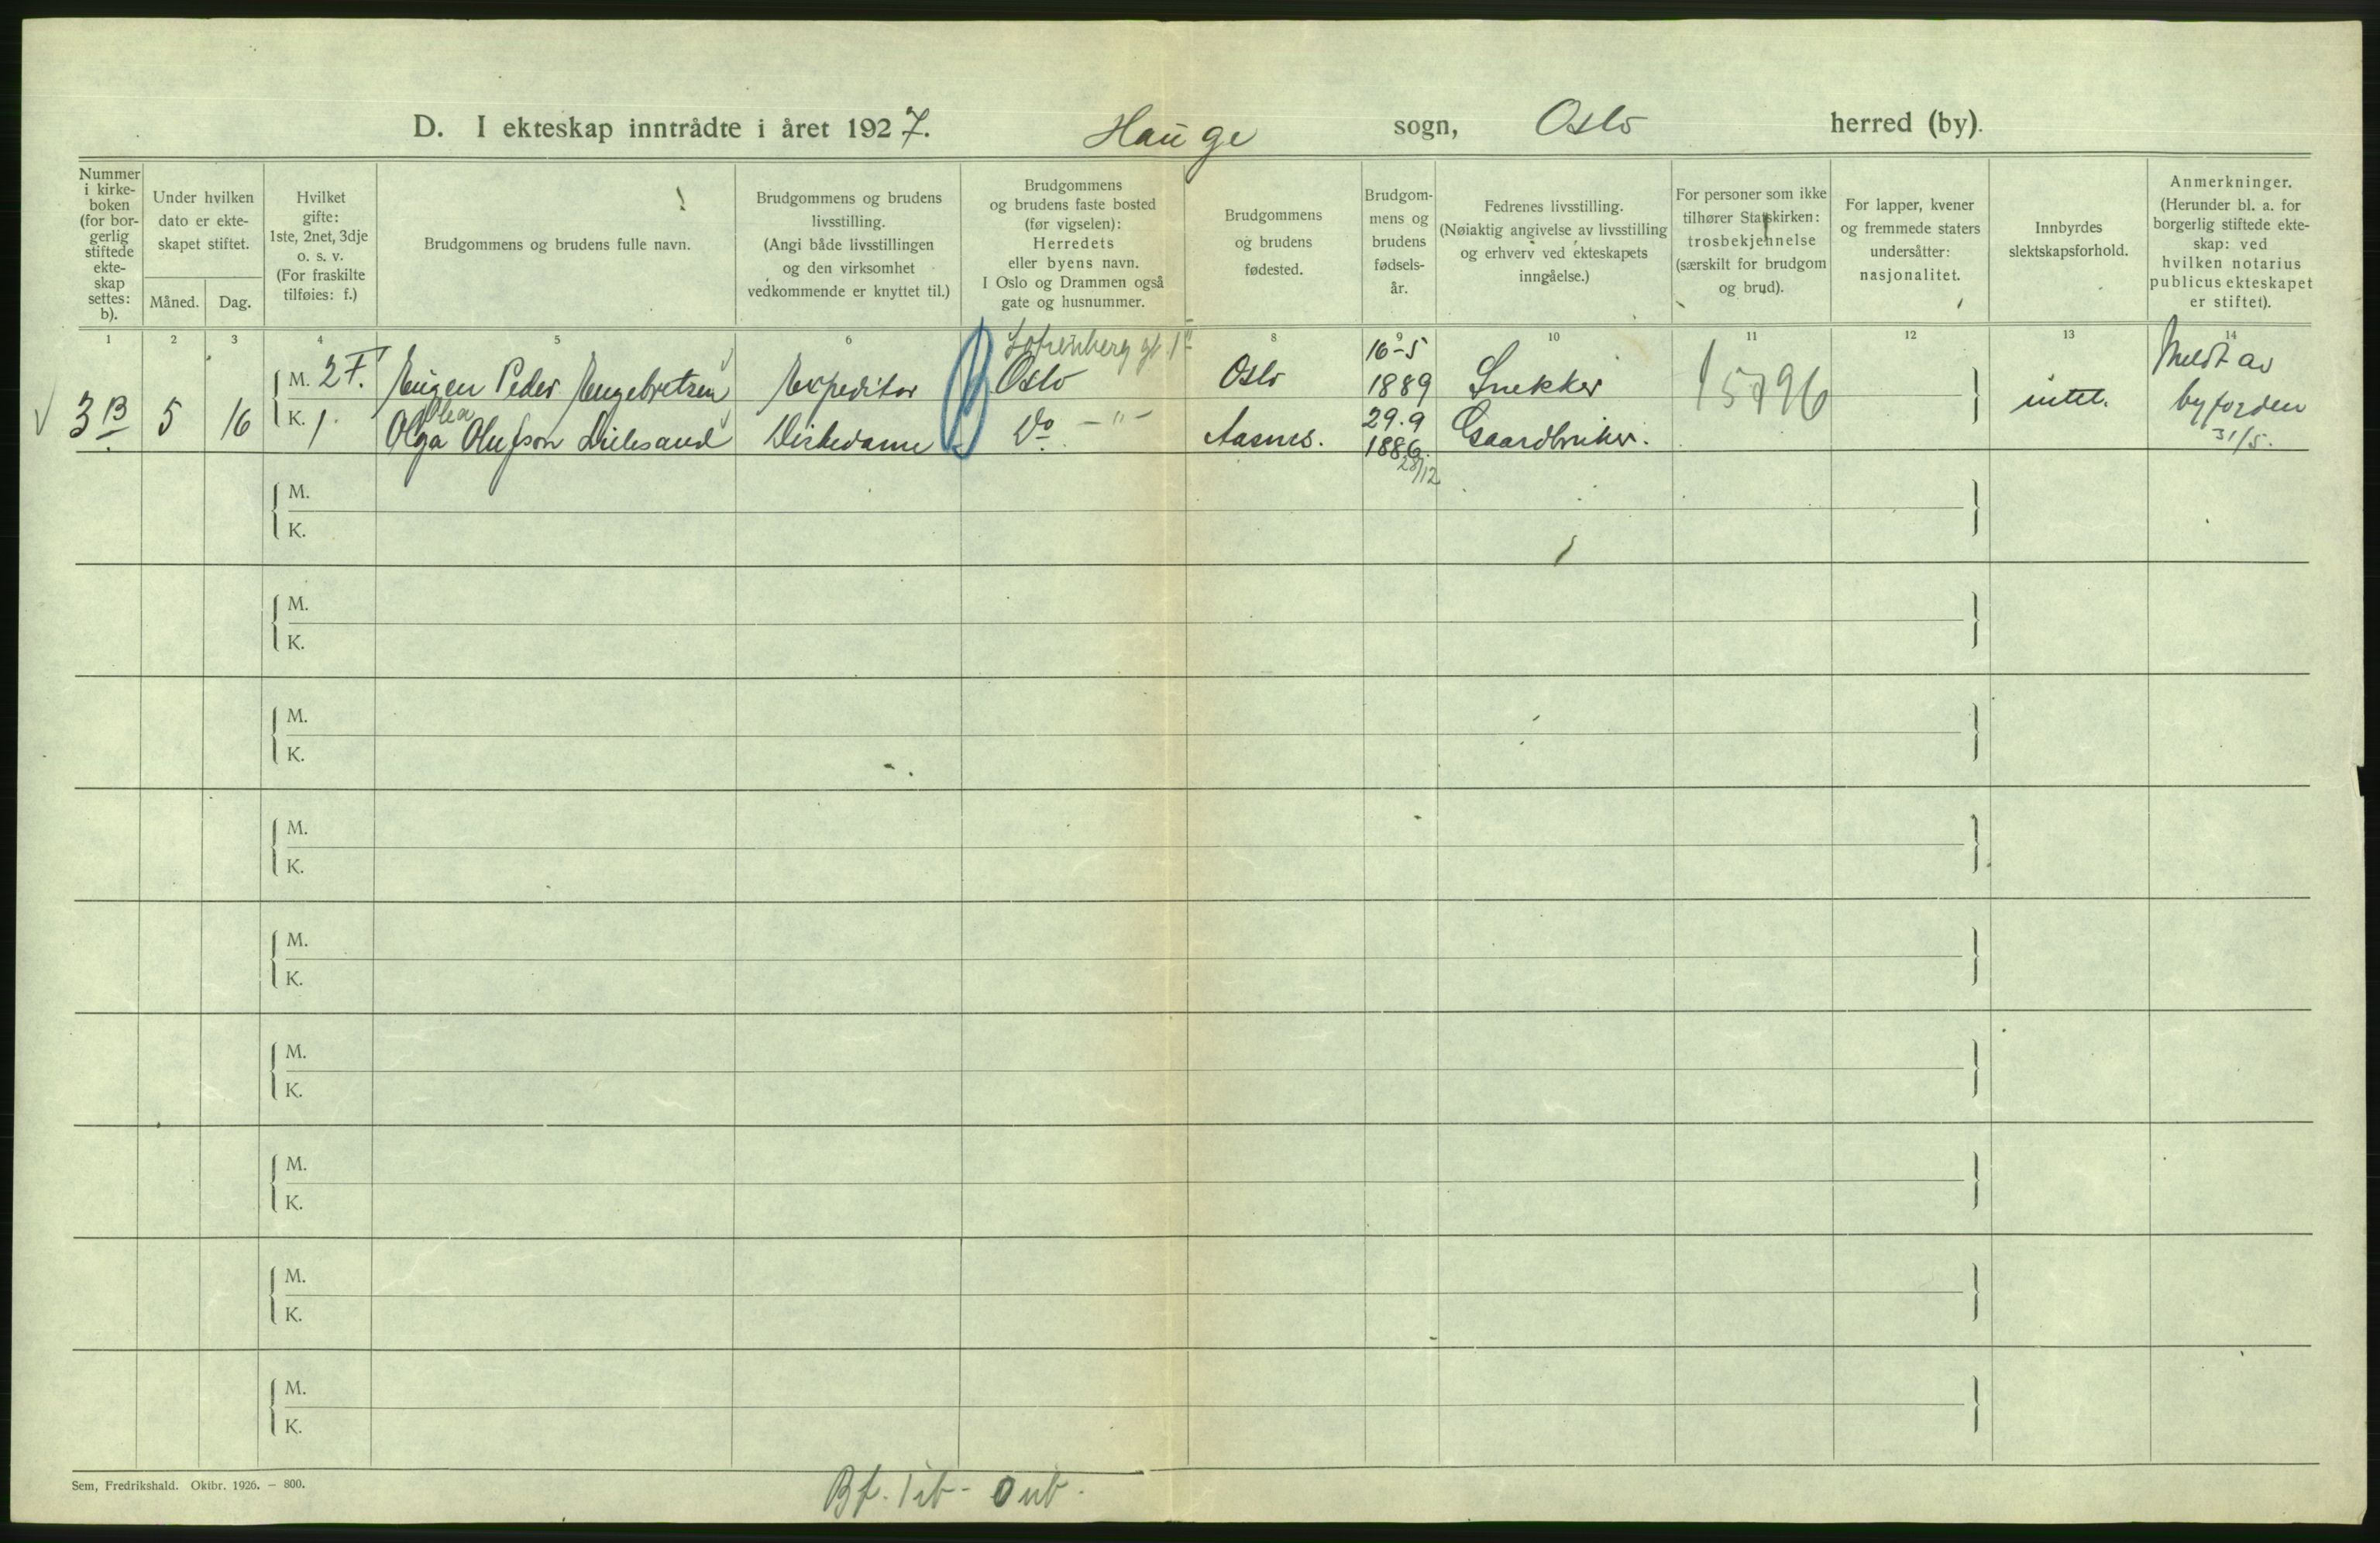 D. I ekteskap inntrådte i året 1927. Hauge sogn, Oslo herred (by).
Nummer i kirke-boken (for bor-gerlig stiftede ekte-skap settes: b).
Under hvilken dato er ekte-skapet stiftet.
Måned. Dag.
Hvilket gifte: 1ste, 2net, 3dje o. s. v. (For fraskilte tilføies: f.)
Brudgommens og brudens fulle navn.
Brudgommens og brudens livsstilling. (Angi både livsstillingen og den virksomhet vedkommende er knyttet til.)
Brudgommens og brudens faste bosted (før vigselen): Herredets eller byens navn. I Oslo og Drammen også gate og husnummer.
Brudgommens og brudens fødested.
Brudgom-mens og brudens fødsels-år.
Fedrenes livsstilling. (Nøiaktig angivelse av livsstilling og erhverv ved ekteskapets inngåelse.)
For personer som ikke tilhører Statskirken: trosbekjennelse (særskilt for brudgom og brud).
For lapper, kvener og fremmede staters undersåtter: nasjonalitet.
Innbyrdes slektskapsforhold.
Anmerkninger. (Herunder bl. a. for borgerlig stiftede ekte-skap: ved hvilken notarius publicus ekteskapet er stiftet).
1 2 3 4 5 6 8 9 10 11 12 13 14
3 B 5 16
M. 2 F. Eugen Peder Engebretsen Expeditør Oslo Oslo 16-5 1889 Snekker 15796 intet. Meldt av byfogden 31/5.
K. 1. Olga Olea Olufson Do - " - Aasnes. 29.9 1886. 28/12 Gaardbruker.
M.
K.
M.
K.
M.
K.
M.
K.
M.
K.
M.
K.
M.
K.
M.
K.
M.
K.
Sem, Fredrikshald. Oktbr. 1926. — 800.